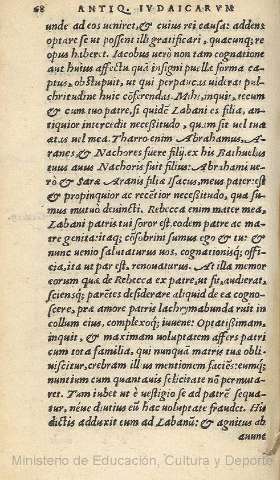 68 ANTIQ. IVDAICARVM
unde ad eos ueniret, & cuius rei causa: addens
optare se ut possent illi gratificari, quacunq; re
opus haberet. Iacobus uerò non tam cognatione
aut huius affectu quã insigni puellæ forma ca-
ptus, obstupuit, ut qui perpaucas uiderat pul-
chritudine huic cõferendas. Mihi, inquit, tecum
& cum tuo patre, si quidē Labani es filia, an-
tiquior intercedit necesitudo, quàm sit uel tua
ætas uel mea. Tharro enim Abrahamus, A-
ranes, & Nachores fuere filij. ex his Bathuelus
tuus auus Nachoris fuit filius: Abrahami ue-
rò & Saræ Aranis filia Isacus, meus pater: est
& propinquior ac recētior necesitudo, qua su-
mus mutuò deuincti. Rebecca enim mater mea,
Labani patris tui soror est, eodem patre ac ma-
tre genita: itaq; cõsobrini sumus ego & tu: &
nunc uenio salutaturus uos, cognationisq; offi-
cia, ita ut par est, renouaturus. At illa memor
eorum quæ de Rebecca ex patre, ut fit, audierat,
sciensq; parētes desiderare aliquid de ea cogno-
scere, præ amore patris lachrymabunda ruit in
collum eius, complexoq; iuuene: Optatißimam,
inquit, & maximam uoluptatem affers patri
cum tota familia, qui nunquã matris tuæ obli-
uiscitur, crebram illius mentionem faciēs: eumq;
nuntium cum quantauis felicitate nõ permuta-
ret. Tum iubet ut è uestigio se ad patrē sequa-
tur, néue diutius eũ hac uoluptate fraudet. His
dictis adduxit eum ad Labanũ: & agnitus ab
auune
Ministerio de Educación, Cultura y Deporte